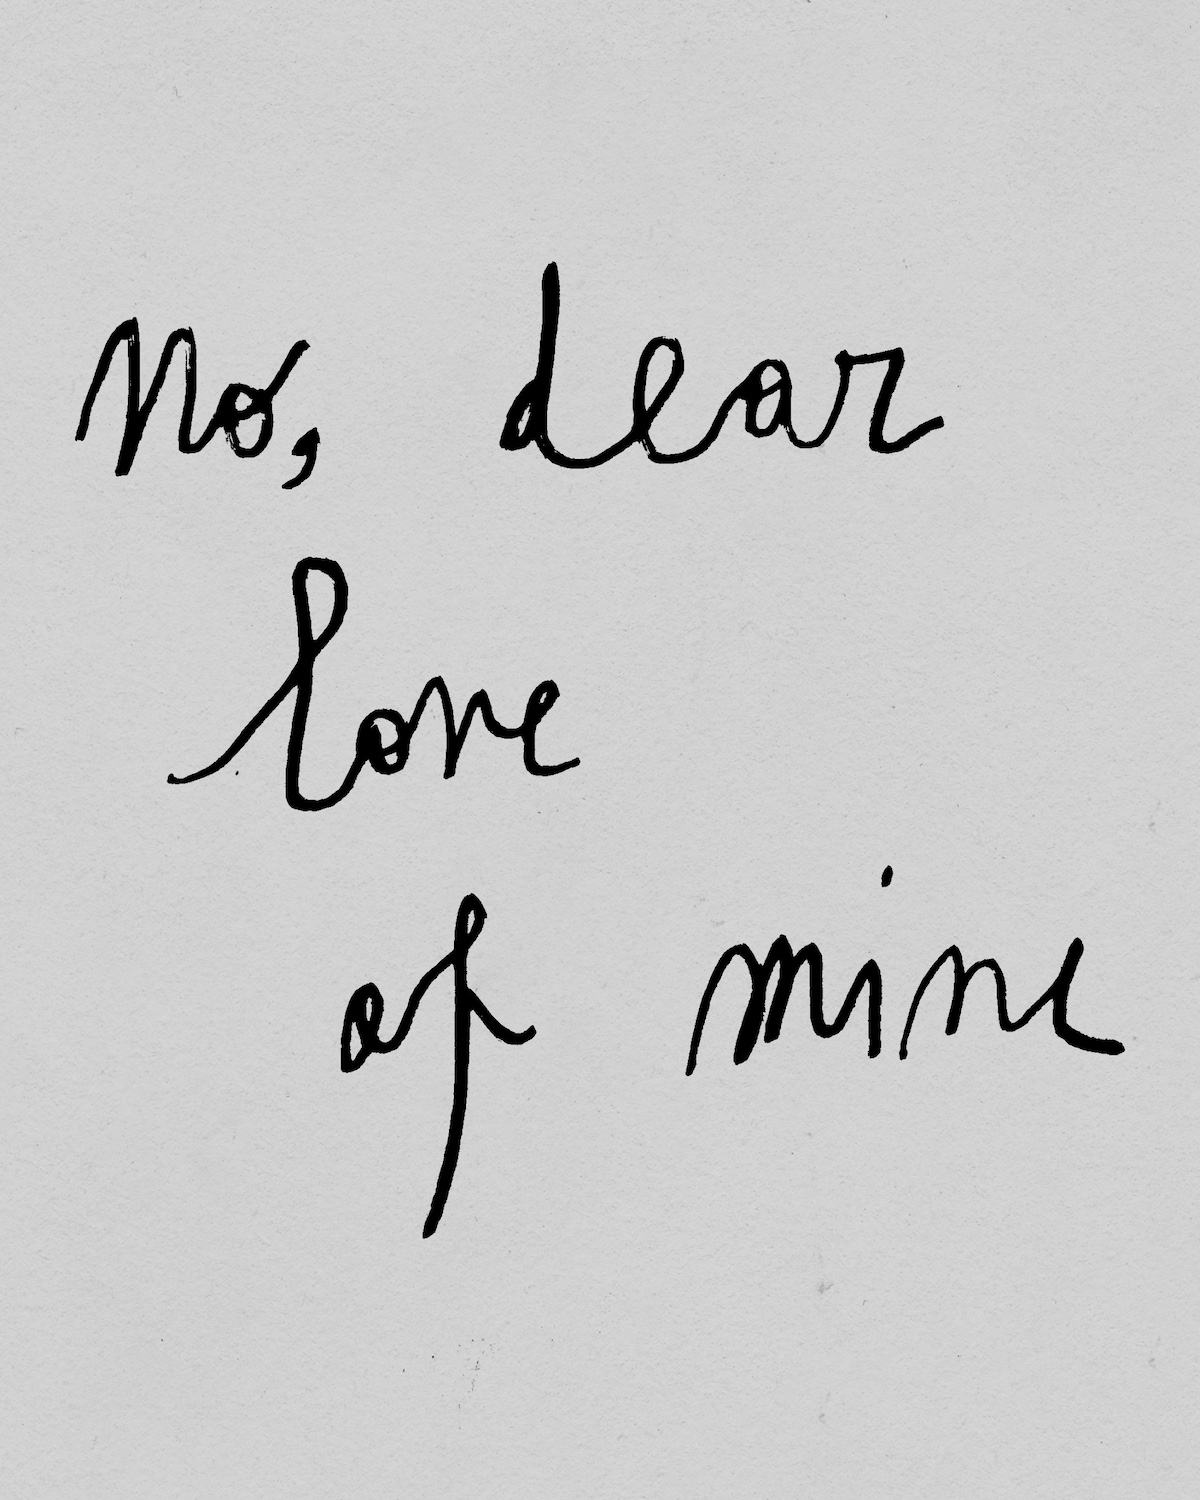 No, dear
love
of mine